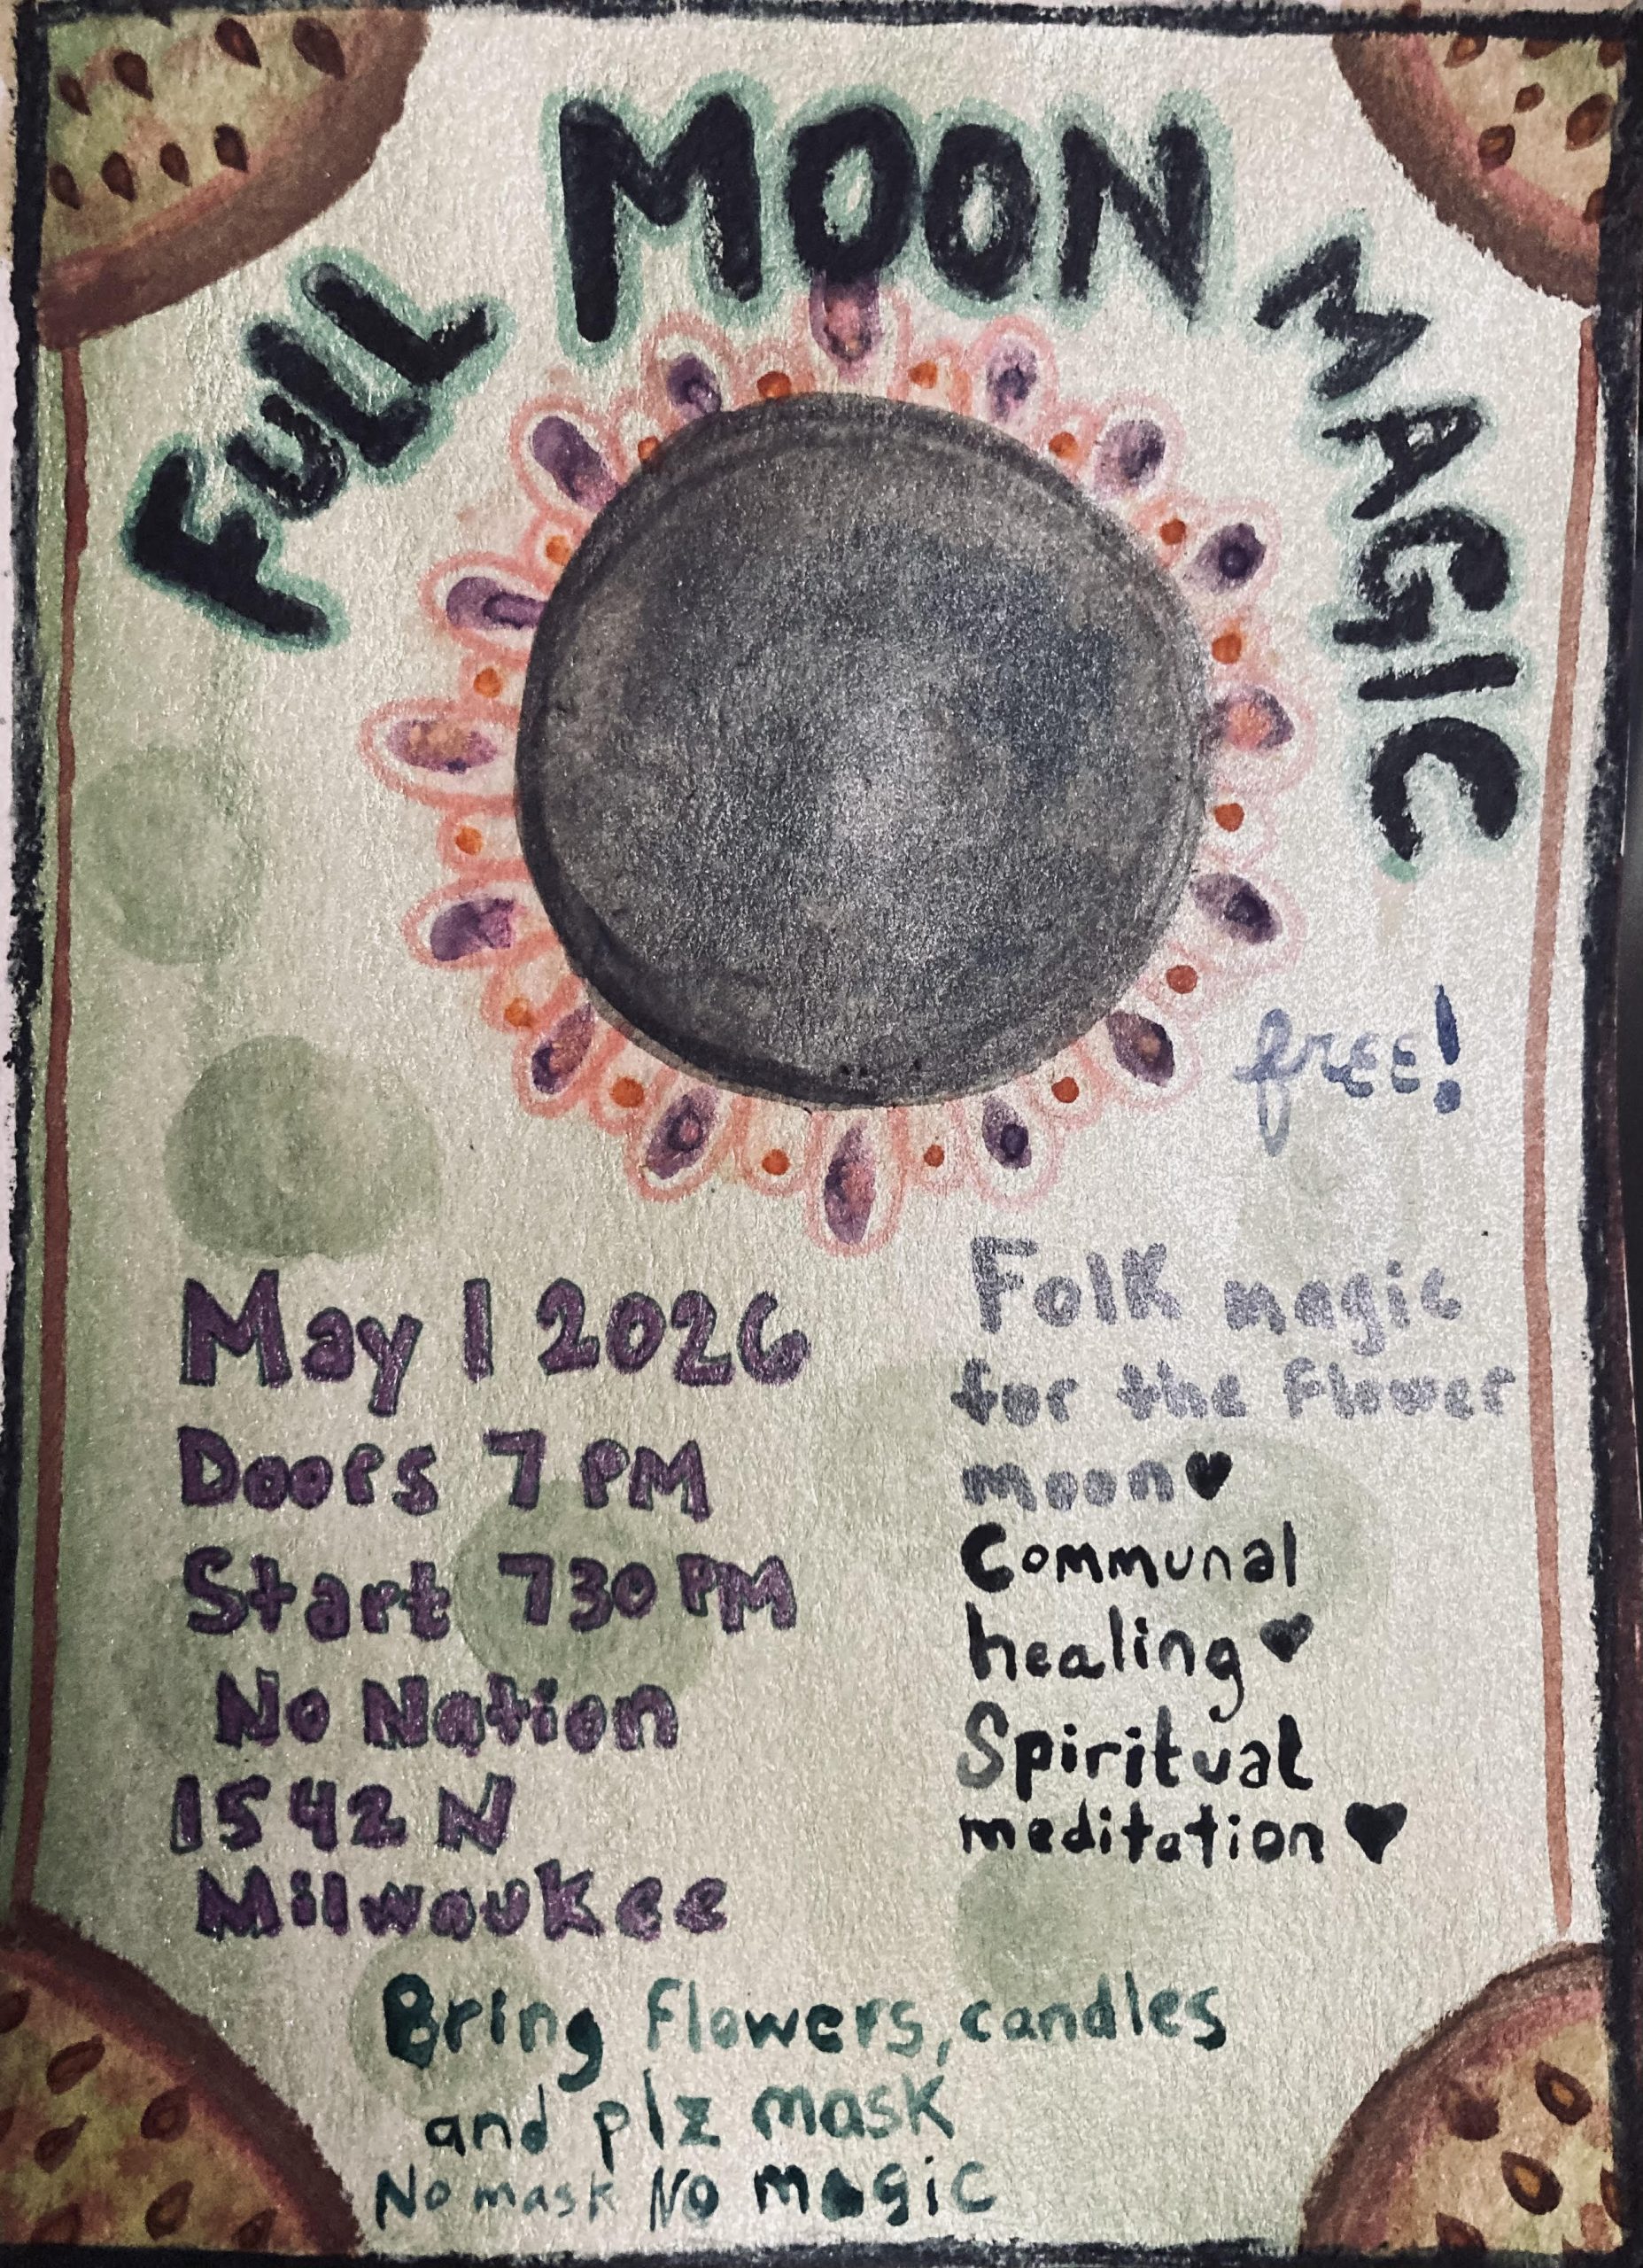 FULL MOON MAGIC
free!
May 1 2026
Doors 7 PM
Start 730 PM
No Nation
1542 N
Milwaukee
Folk magic
for the Flower
moon♥
Communal
healing♥
Spiritual
meditation♥
Bring flowers, candles
and plz mask
No mask No magic